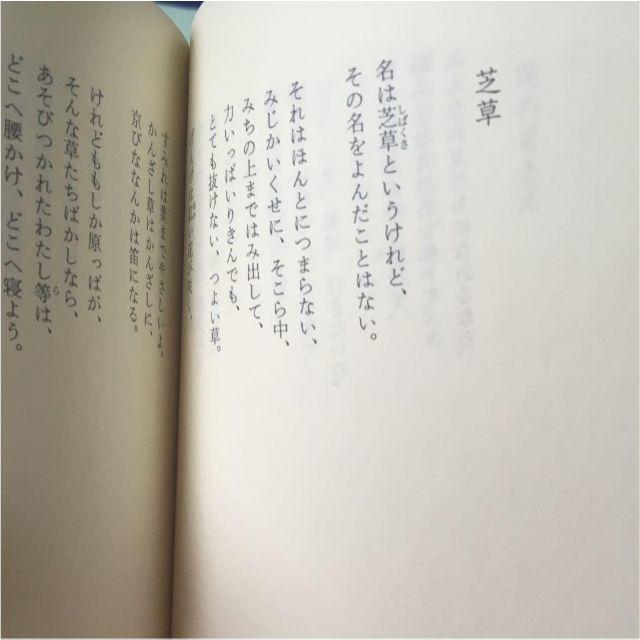 芝草
名は芝草というけれど、
その名をよんだことはない。
それはほんとにつまらない、
みじかいくせに、そこら中、
みちの上まではみ出して、
力いっぱいりきんでも、
とても抜けない、つよい草。
すみれは葉までやさしいよ。
かんざし草はかんざしに、
京びななんかは笛になる。
けれどももしか原っぱが、
そんな草たちばかしなら、
あそびつかれたわたし等は、
どこへ腰かけ、どこへ寝よう。